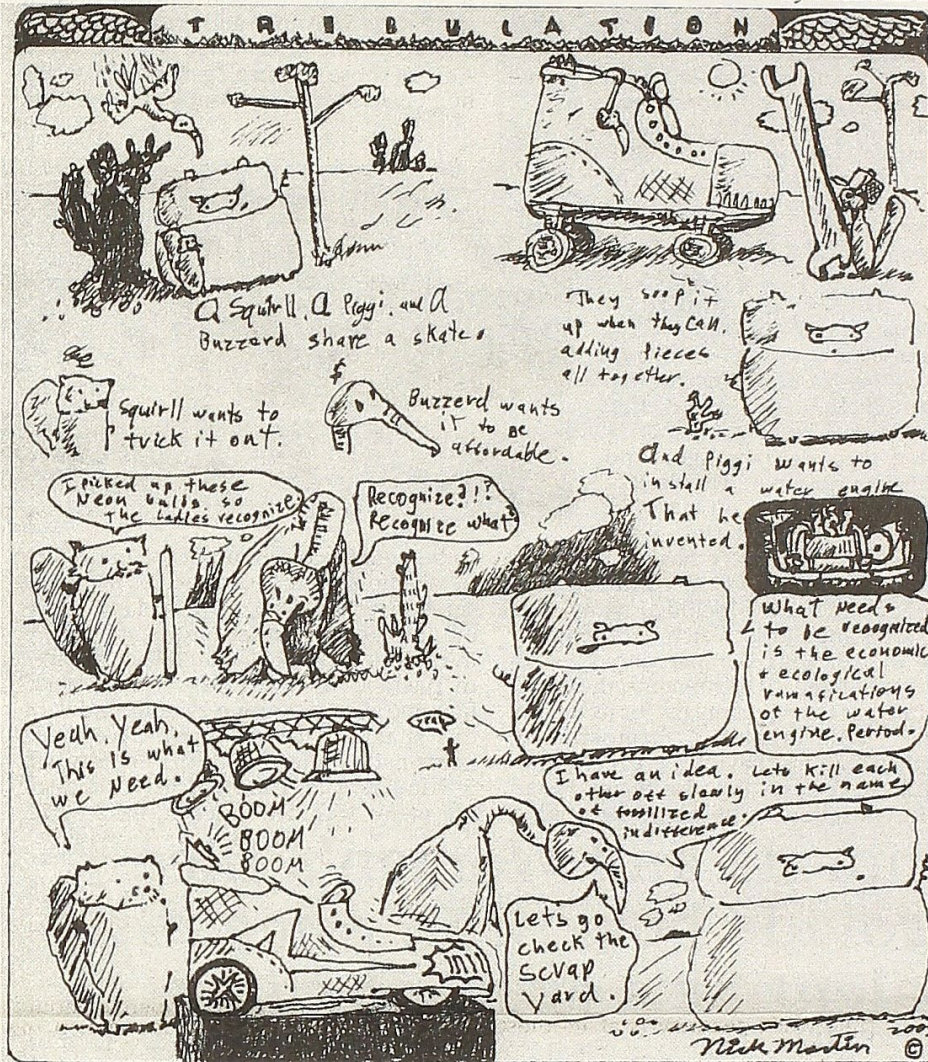 TRIBULATION
A Squirll, A Piggi, and A
Buzzerd share a skate.
They soop it
up when they can,
adding pieces
all together.
Squirll wants to
trick it out.
$
Buzzerd wants
it to be
affordable.
And Piggi wants to
install a water engine
That he
invented.
I picked up these
Neon bulbs so
The Ladies recognize.
Recognize?!?
Recognize what?
What Needs
to be recognized
is the economic
+ ecological
ramafications
of the water
engine. Period.
Yeah, Yeah,
This is what
we need.
yeah
BOOM
BOOM
BOOM
I have an idea. Lets kill each
other off slowly in the name
of fossilized
indifference.
Let's go
check the
Scrap
Yard.
Nick Martin ©